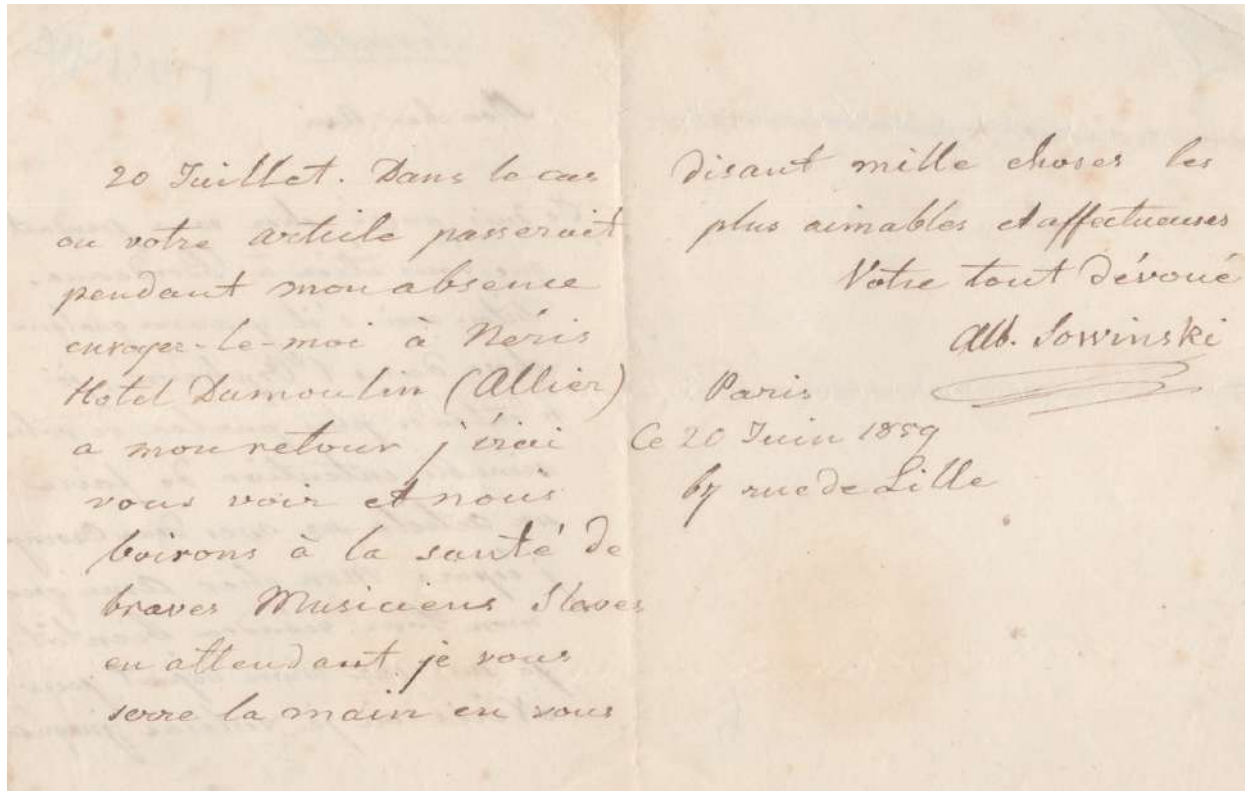 20 Juillet. Dans le cas
ou votre article passerait
pendant mon absence
envoyez-le-moi à Néris
Hotel Dumoulin (Allier)
a mon retour j'irai
vous voir et nous
boirons à la santé de
braves Musiciens Slaves
en attendant je vous
serre la main en vous
disant mille choses les
plus aimables et affectueuses
Votre tout dévoué
Alb. Sowinski
Paris
Ce 20 Juin 1859
67 rue de Lille